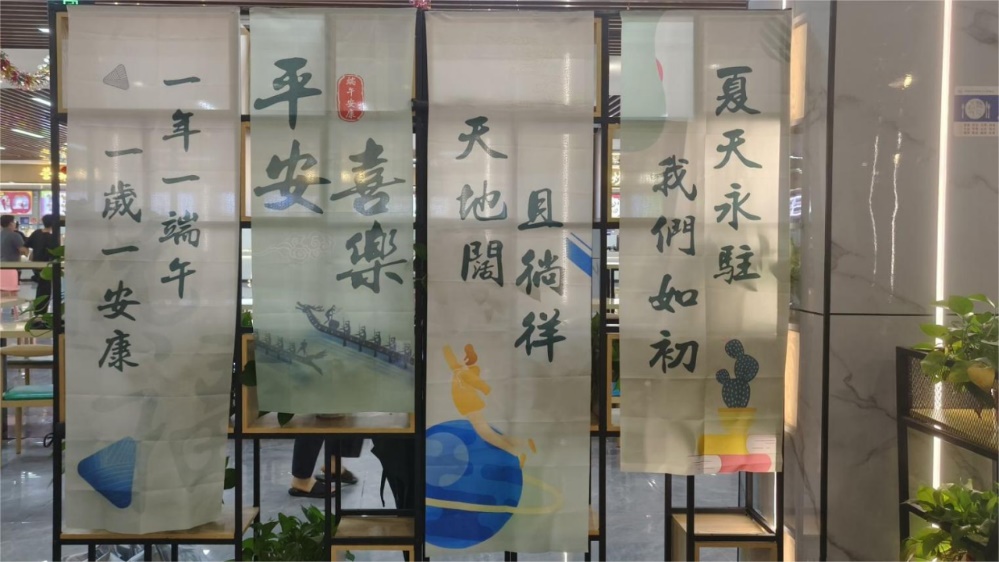 一年一端午
一歲一安康
平安
喜樂
端午安康
天地闊
且徜徉
夏天永駐
我們如初